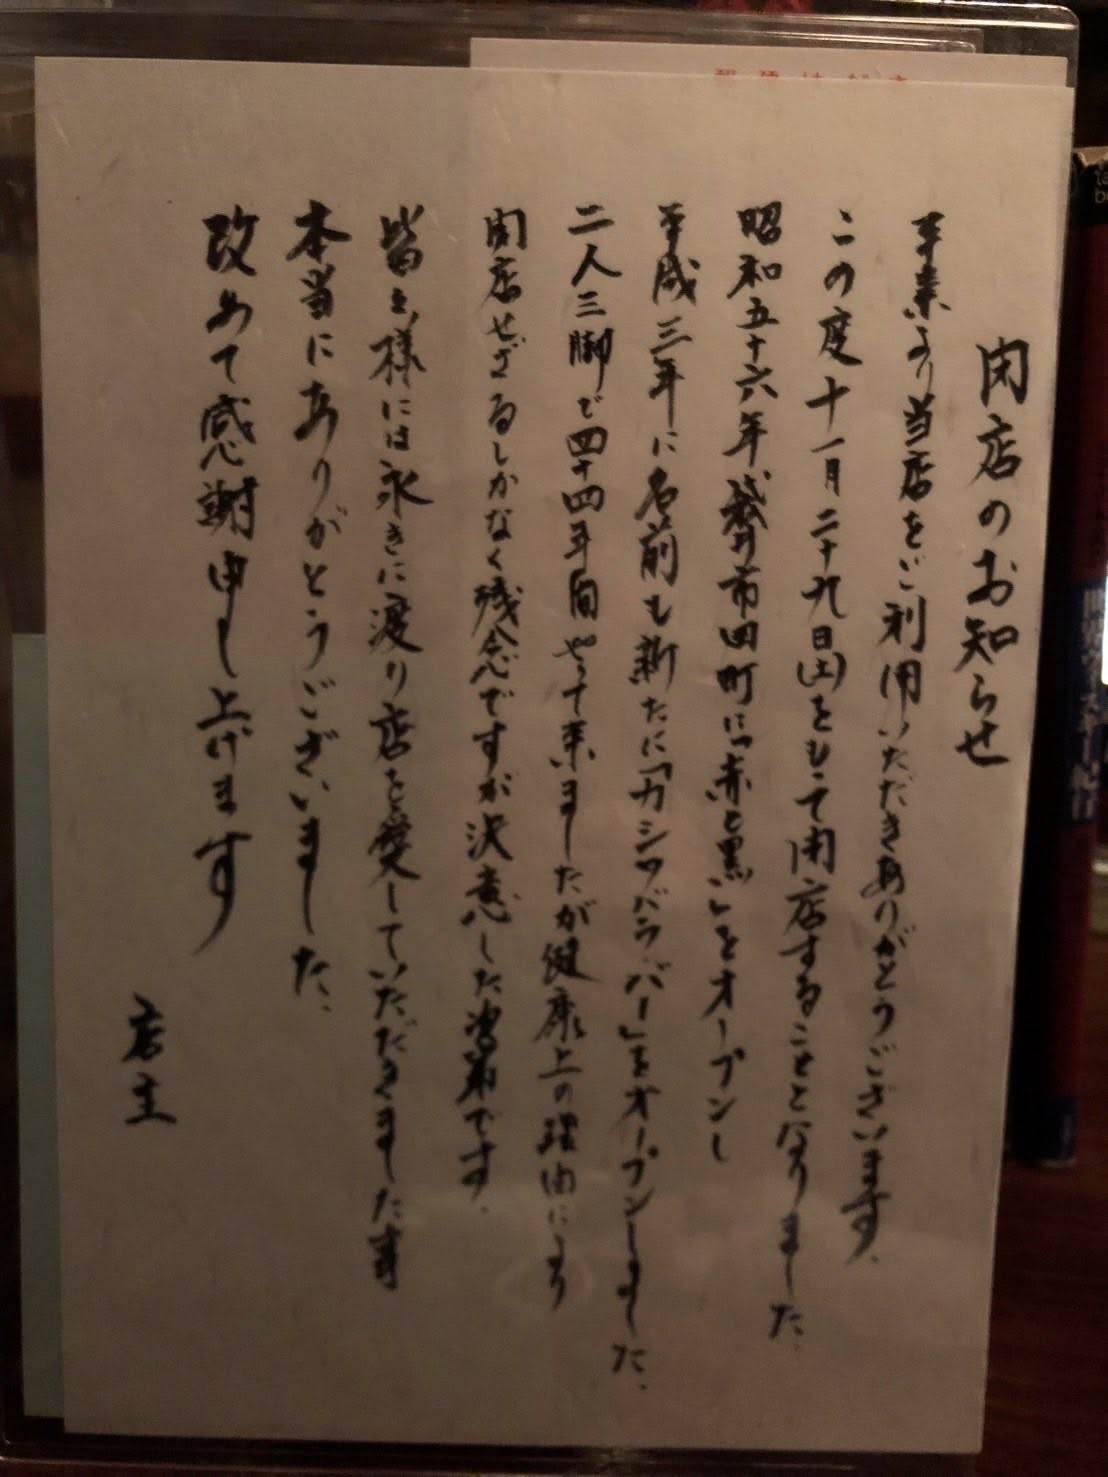 閉店のお知らせ
平素より当店をご利用いただきありがとうございます。
この度十一月二十九日(土)をもって閉店することとなりました。
昭和五十六年袋井市田町に「赤と黒」をオープンし
平成三年に名前も新たに「バー」をオープンしました。
二人三脚で四十四年間やって来ましたが健康上の理由により
閉店せざるしかなく残念ですが決意した次第です。
皆々様には永きに渡り店を愛していただきました事
本当にありがとうございました。
改めて感謝申し上げます
店主